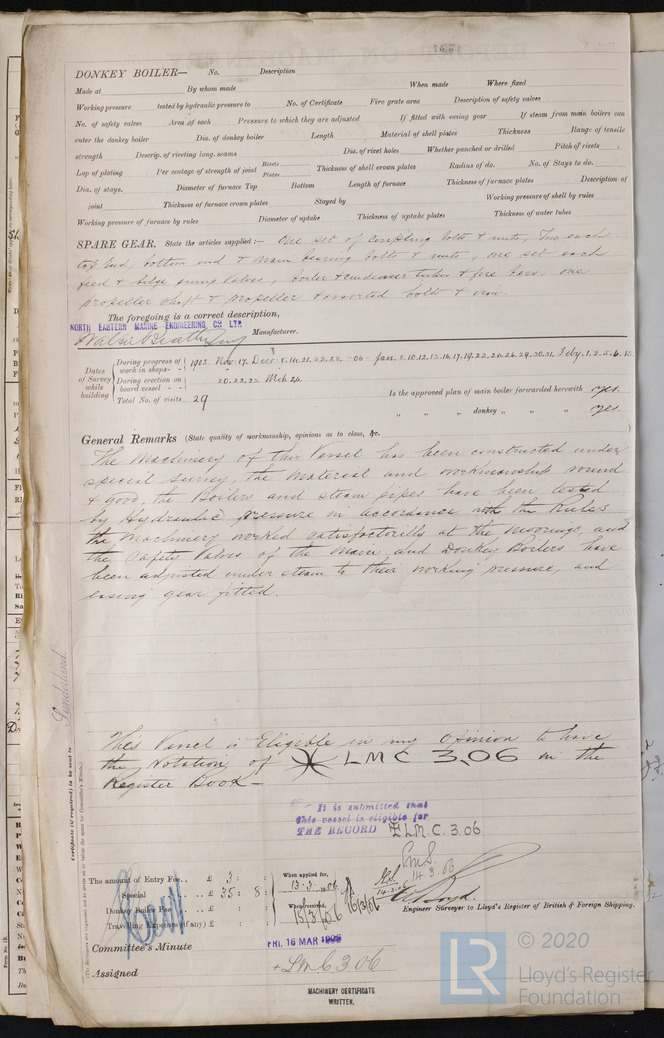 DONKEY BOILER— No. Description
Made at By whom made When made Where fixed
Working pressure tested by hydraulic pressure to No. of Certificate Fire grate area Description of safety valves
No. of safety valves Area of each Pressure to which they are adjusted If fitted with easing gear If steam from main boilers can
enter the donkey boiler Dia. of donkey boiler Length Material of shell plates Thickness Range of tensile
strength Descrip. of riveting long. seams Dia. of rivet holes Whether punched or drilled Pitch of rivets
Lap of plating Per centage of strength of joint Rivets Plates Thickness of shell crown plates Radius of do. No. of Stays to do.
Dia. of stays. Diameter of furnace Top Bottom Length of furnace Thickness of furnace plates Description of
joint Thickness of furnace crown plates Stayed by Working pressure of shell by rules
Working pressure of furnace by rules Diameter of uptake Thickness of uptake plates Thickness of water tubes
SPARE GEAR. State the articles supplied:— One set of coupling bolts & nuts, Two each
top end, bottom end & main bearing bolts & nuts, one set each
feed & bilge pump valves, boiler & condenser tubes & fire bars, one
propeller shaft & propeller & assorted bolts & iron.
The foregoing is a correct description,
NORTH EASTERN MARINE ENGINEERING CO LTD
Manufacturer.
Dates of Survey while building
During progress of work in shops - - 1905. Nov. 17. Dec. 8.14.21.22.28. -06- Jan. 8.10.12.15.16.17.19.22.24.26.29.30.31 Feby. 1.2.5.6.15.
During erection on board vessel - - 20.22.23. Mch 26.
Total No. of visits 29
Is the approved plan of main boiler forwarded herewith yes.
" " " donkey " " " yes.
General Remarks (State quality of workmanship, opinions as to class, &c.
The Machinery of this Vessel has been constructed under
special survey, the material and workmanship sound
& good, the Boilers and steam pipes have been tested
by Hydraulic pressure in accordance with the Rules
the Machinery worked satisfactorily at the moorings, and
the Safety Valves of the Main and Donkey Boilers have
been adjusted under steam to their working pressure, and
easing gear fitted.
Sunderland.
This Vessel is Eligible in my Opinion to have
the notation of LMC 3.06 in the
Register Book—
It is submitted that
this vessel is eligible for
THE RECORD LMC. 3.06
14.3.06
The amount of Entry Fee .. £ 3 : :
Special .. .. £ 35 : 8 :
Donkey Boiler Fee .. £ : :
Travelling Expenses (if any) £ : :
When applied for,
13.3.06
When received,
15/3/06
16/3/06
Engineer Surveyor to Lloyd's Register of British & Foreign Shipping.
Committee's Minute
FRI. 16 MAR 1906
Assigned
+ LMC 3.06
MACHINERY CERTIFICATE
WRITTEN.
LR
© 2020
Lloyd's Register
Foundation